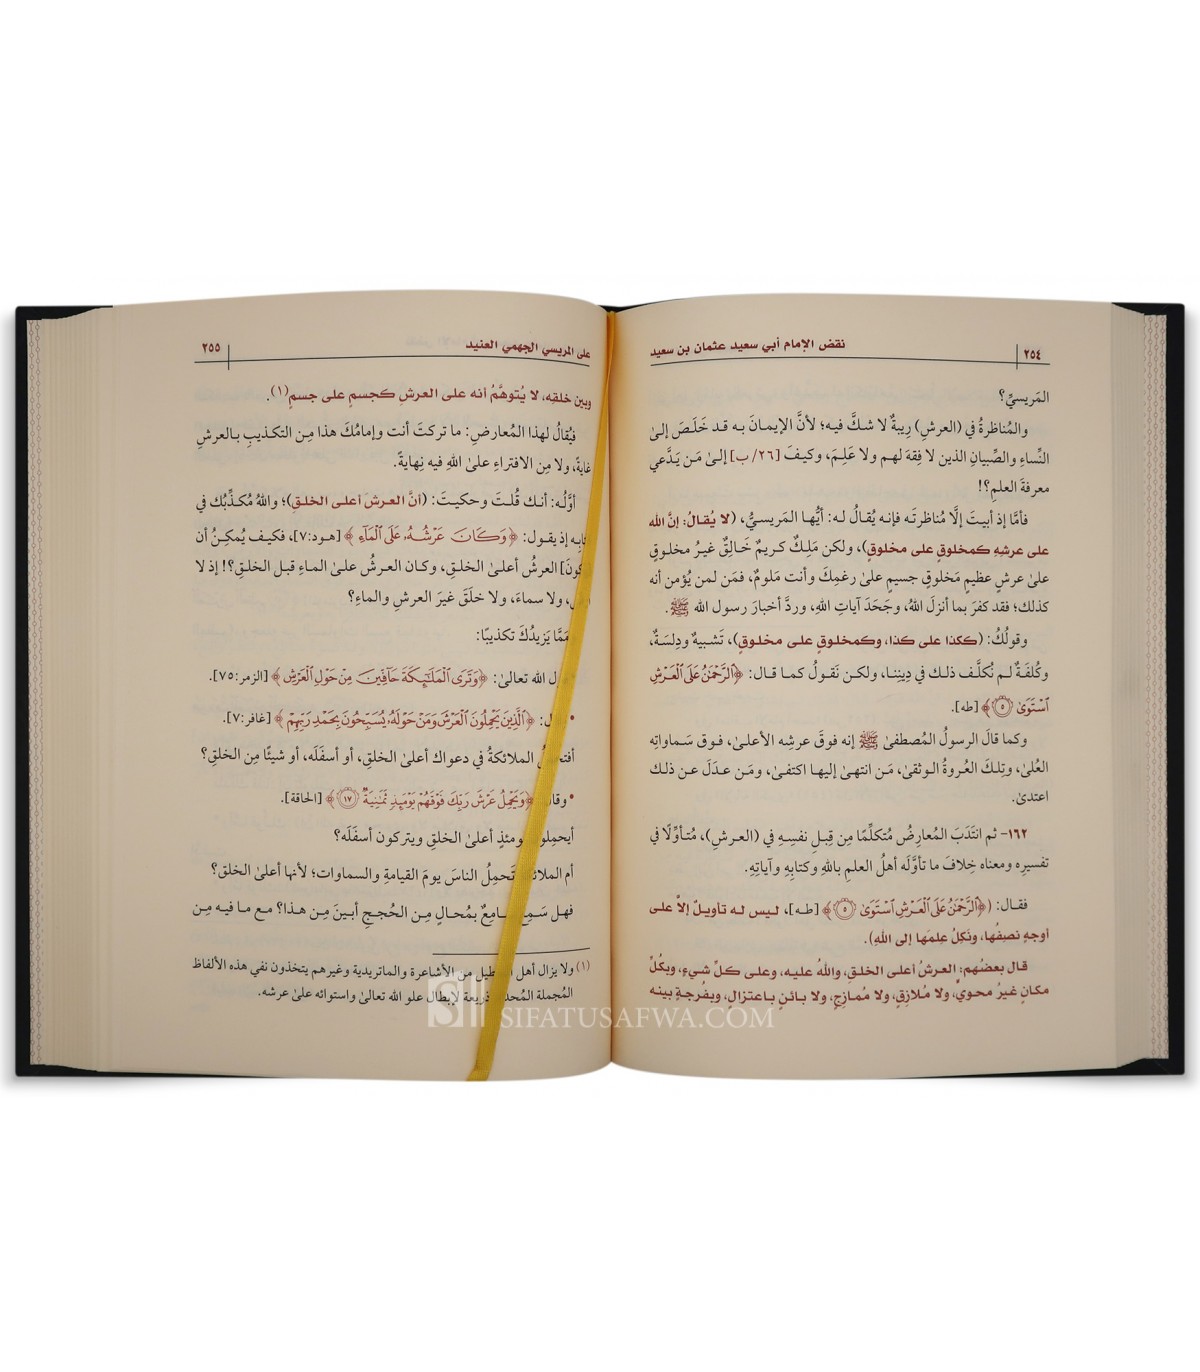 ٢٥٤
نقض الإمام أبي سعيد عثمان بن سعيد
المَريسيِّ؟
والمُناظرةُ في (العرشِ) رِيبةٌ لا شكَّ فيه؛ لأنَّ الإيمانَ به قد خَلَصَ إلىٰ
النِّساءِ والصِّبيانِ الذين لا فِقهَ لهم ولا عَلِمَ، وكيفَ [٢٦/ ب] إلىٰ مَن يَدَّعي
معرفةَ العلمِ؟!
فأمَّا إذ أبيتَ إلَّا مُناظرتَه فإنه يُقالُ له: أيُّها المَريسيُّ، (لا يُقالُ: إنَّ الله
على عرشِهِ كمخلوقٍ على مخلوقٍ)، ولكن مَلِكٌ كريمٌ خَالِقٌ غيرُ مخلوقٍ
علىٰ عرشٍ عظيمٍ مَخلوقٍ جسيمٍ علىٰ رغمِكَ وأنت مَلومٌ، فمَن لمن يُؤمن أنه
كذلك؛ فقد كفرَ بما أنزلَ اللهُ، وجَحَدَ آياتِ اللهِ، وردَّ أخبارَ رسول الله ﷺ.
وقولُكُ: (ككذا على كذا، وكمخلوقٍ على مخلوقٍ)، تَشبيهٌ ودِلسَةٌ،
وكُلفَةٌ لم نُكلَّف ذلك في دِينِنا، ولكن نَقولُ كما قال: ﴿ٱلرَّحْمَٰنُ عَلَى ٱلْعَرْشِ
ٱسْتَوَىٰ ۝٥﴾ [طه].
وكما قالَ الرسولُ المُصطفىٰ ﷺ إنه فوقَ عرشِه الأعلىٰ، فوق سَماواتِه
العُلىٰ، وتِلكَ العُروةُ الوثقىٰ، مَن انتهىٰ إليها اكتفىٰ، ومَن عدَلَ عن ذلك
اعتدىٰ.
١٦٢- ثم انتَدَبَ المُعارِضُ مُتكلِّمًا مِن قِبلِ نفسِهِ في (العرشِ)، مُتأوِّلًا في
تفسيرِه ومعناه خِلافَ ما تأوَّلَه أهلُ العلمِ باللهِ وكتابِهِ وآياتِهِ.
فقال: (﴿ٱلرَّحْمَٰنُ عَلَى ٱلْعَرْشِ ٱسْتَوَىٰ ۝٥﴾ [طه]، ليس له تأويلٌ إلاَّ على
أوجهٍ نصِفُها، ونَكِلُ عِلمَها إلى اللهِ).
قال بعضُهم: العرشُ أعلى الخلقِ، واللهُ عليه، وعلى كلِّ شيءٍ، وبكُلِّ
مكانٍ غيرُ محويٍ، ولا مُلازِقٍ، ولا مُمازِجٍ، ولا بائنٍ باعتزالٍ، وبفُرجةٍ بينه
على المريسي الجهمي العنيد
٢٥٥
وبين خلقِه، لا يُتوهَّمُ أنه على العرشِ كجسمٍ على جسمٍ(١).
فيُقالُ لهذا المُعارضِ: ما تركتَ أنت وإمامُكَ هذا مِن التكذيبِ بالعرشِ
غايةً، ولا مِن الافتراءِ علىٰ اللهِ فيه نِهايةً.
أوَّلُه: أنك قُلتَ وحكيتَ: (أنَّ العرشَ أعلى الخلقِ)؛ واللهُ مُكذِّبُك في
إذ يقول: ﴿وَكَانَ عَرْشُهُۥ عَلَى ٱلْمَآءِ﴾ [هود:٧]، فكيف يُمكِنُ أن
العرشُ أعلىٰ الخلقِ، وكان العرشُ علىٰ الماءِ قبل الخلقِ؟! إذ لا
ولا سماءَ، ولا خلَقَ غيرَ العرشِ والماءِ؟
يَزيدُكَ تكذيبًا:
الله تعالىٰ: ﴿وَتَرَى ٱلْمَلَٰٓئِكَةَ حَآفِّينَ مِنْ حَوْلِ ٱلْعَرْشِ﴾ [الزمر:٧٥].
﴿ٱلَّذِينَ يَحْمِلُونَ ٱلْعَرْشَ وَمَنْ حَوْلَهُۥ يُسَبِّحُونَ بِحَمْدِ رَبِّهِمْ﴾ [غافر:٧].
الملائكةُ في دعواك أعلىٰ الخلقِ، أو أسفلَه، أو شيئًا مِن الخلقِ؟
﴿وَيَحْمِلُ عَرْشَ رَبِّكَ فَوْقَهُمْ يَوْمَئِذٍ ثَمَٰنِيَةٌ ۝١٧﴾ [الحاقة].
أعلىٰ الخلقِ ويتركون أسفلَه؟
أم تَحمِلُ الناسَ يومَ القيامةِ والسماوات؛ لأنها أعلىٰ الخلق؟
فهل بمُحالٍ مِن الحُججِ أبينَ مِن هذا؟ مع ما فيه مِن
(١) ولا يزال أهل من الأشاعرة والماتريدية وغيرهم يتخذون نفي هذه الألفاظ
المُجملة ذريعة لإبطال علو الله تعالىٰ واستوائه علىٰ عرشه.
SIFATUSAFWA.COM